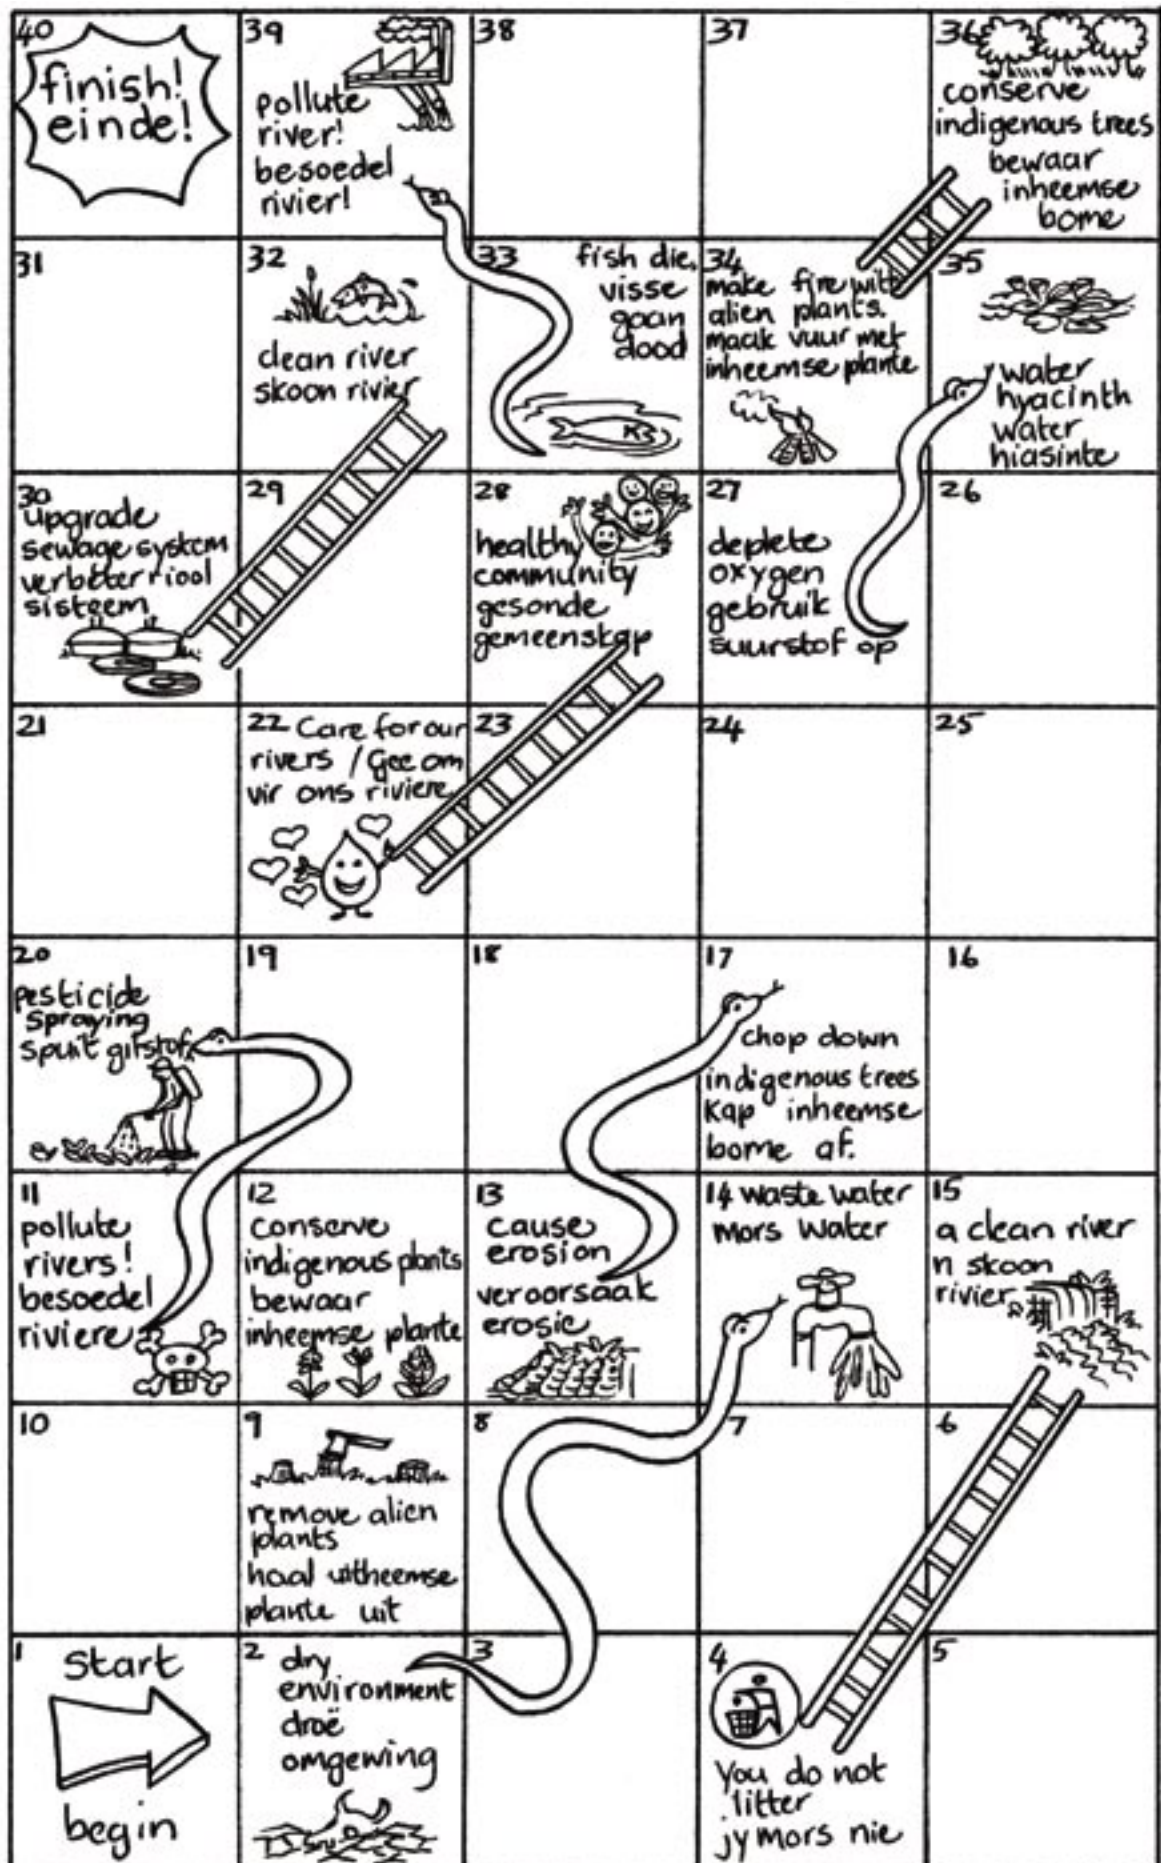 40
finish!
einde!
39
pollute
river!
besoedel
rivier!
38
37
36
conserve
indigenous trees
bewaar
inheemse
bome
31
32
clean river
skoon rivier
33
fish die.
visse
gaan
dood
34
make fire with
alien plants.
maak vuur met
inheemse plante
35
water
hyacinth
water
hiasinte
30
upgrade
sewage system
verbeter riool
sisteem
29
28
healthy
community
gesonde
gemeenskap
27
deplete
oxygen
gebruik
suurstof op
26
21
22 Care for our
rivers / Gee om
vir ons riviere
23
24
25
20
pesticide
spraying
spuit gifstof
19
18
17
chop down
indigenous trees
kap inheemse
bome af.
16
11
pollute
rivers!
besoedel
riviere
12
conserve
indigenous plants
bewaar
inheemse plante
13
cause
erosion
veroorsaak
erosie
14 waste water
mors water
15
a clean river
n skoon
rivier
10
9
remove alien
plants
haal uitheemse
plante uit
8
7
6
1
Start
begin
2
dry
environment
droë
omgewing
3
4
You do not
litter
jy mors nie
5